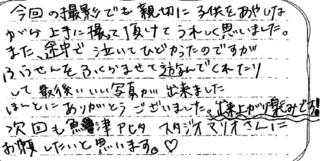 今回の撮影でも親切に子供をあやしな
がら上手に撮って頂けてうれしく思いました。
また、途中で泣いてひどかったのですが
ふうせんをふくらませて遊んでくれたり
して最後いい写真が出来ました
ほんとにありがとうございました。出来上がり楽しみです!!
次回も魚津アピタ スタジオマリオさんに
お願したいと思います。♡